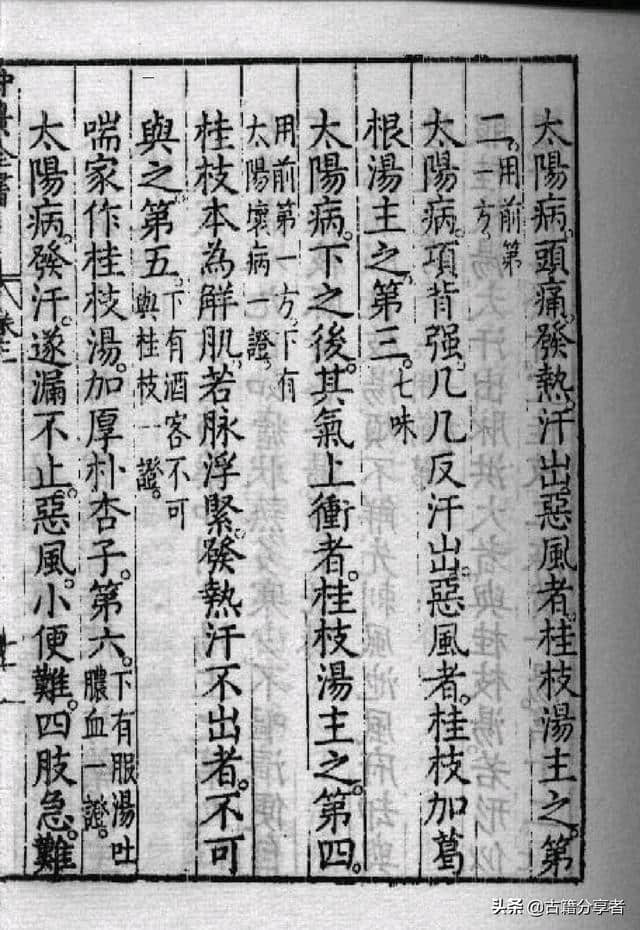 太陽病。頭痛。發熱。汗出。惡風者。桂枝湯主之。第
二。用前第一方。
太陽病。項背强。几几反汗出。惡風者。桂枝加葛
根湯主之。第三。七味
太陽病。下之後。其氣上衝者。桂枝湯主之。第四。
用前第一方。下有太陽壞病一證。
桂枝本為解肌。若脉浮緊。發熱汗不出者。不可
與之。第五。下有酒客不可與桂枝一證。
喘家作桂枝湯。加厚朴杏子。第六。下有服湯吐膿血一證。
太陽病。發汗。遂漏不止。惡風。小便難。四肢急。難
头条 @古籍分享者